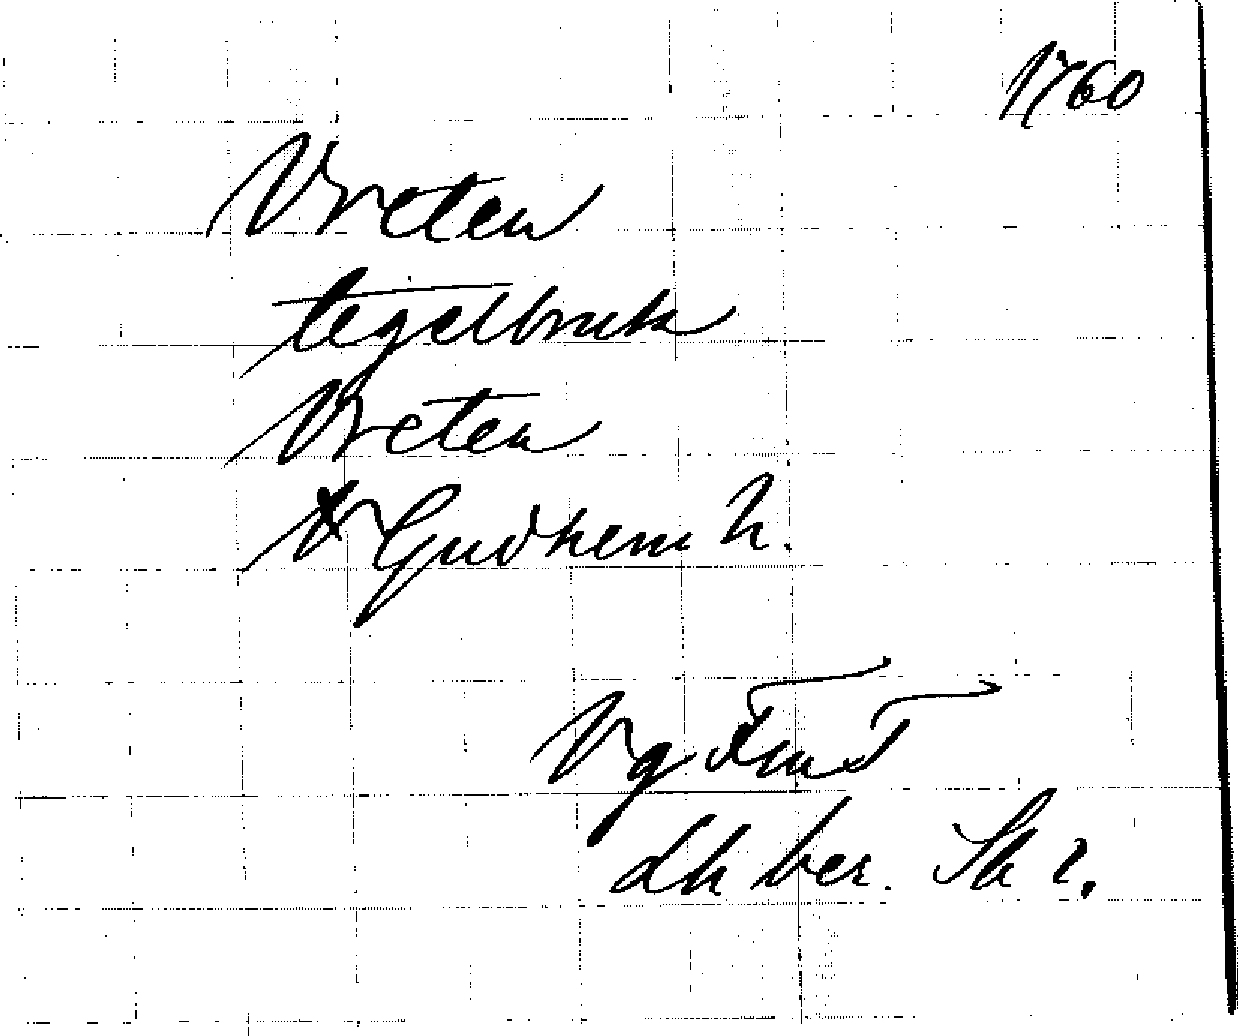 1760
Vreten
tegelbruk
Vreten
Gudhem h.
Vg
lh ber. Sk 2.